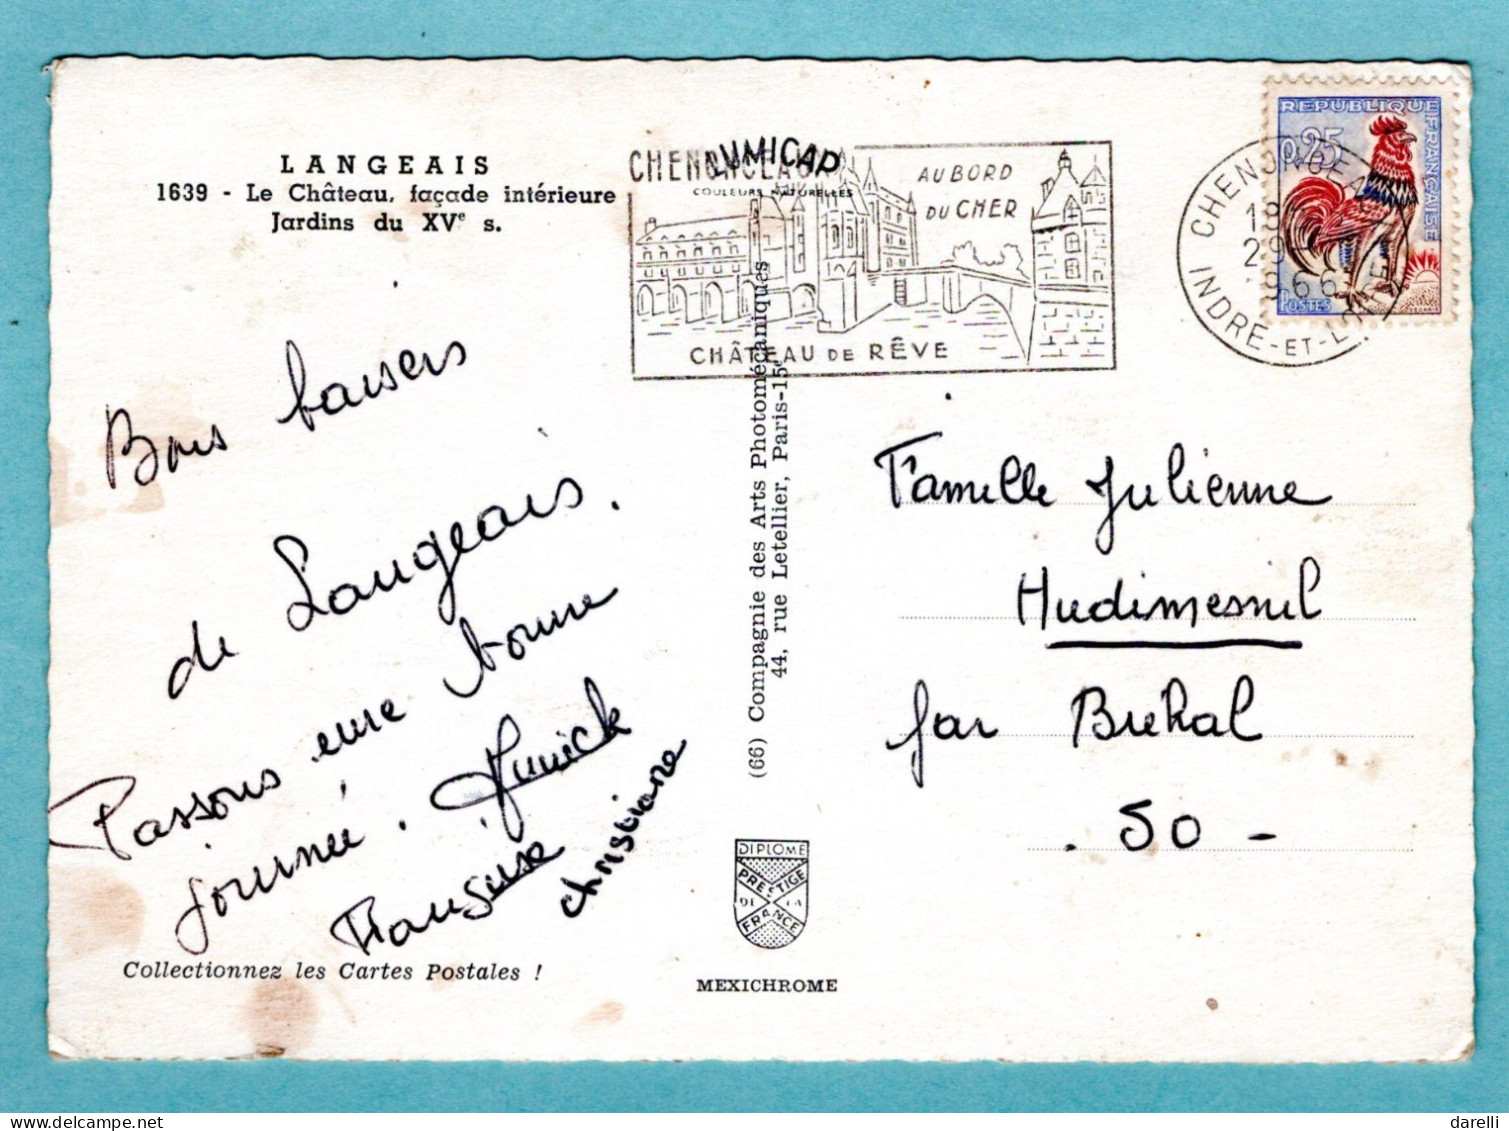 LANGEAIS
1639 - Le Château, façade intérieure
Jardins du XVe s.
LUMICAP
COULEURS NATURELLES
CHENONCEAUX
AU BORD
DU CHER
CHÂTEAU DE RÊVE
CHENONCEAUX
18
29
1966
INDRE-ET-LOIRE
REPUBLIQUE FRANÇAISE
0,25
POSTES
Bons baisers
de Langeais.
Passons une bonne
journée. Annick
Françoise
christiane
Collectionnez les Cartes Postales !
(66) Compagnie des Arts Photomécaniques
44, rue Letellier, Paris-15e
DIPLOME
PRESTIGE
DE LA
FRANCE
MEXICHROME
Famille Julienne
Hudimesnil
par Bréhal
. 50 -
darelli
delcampe.net